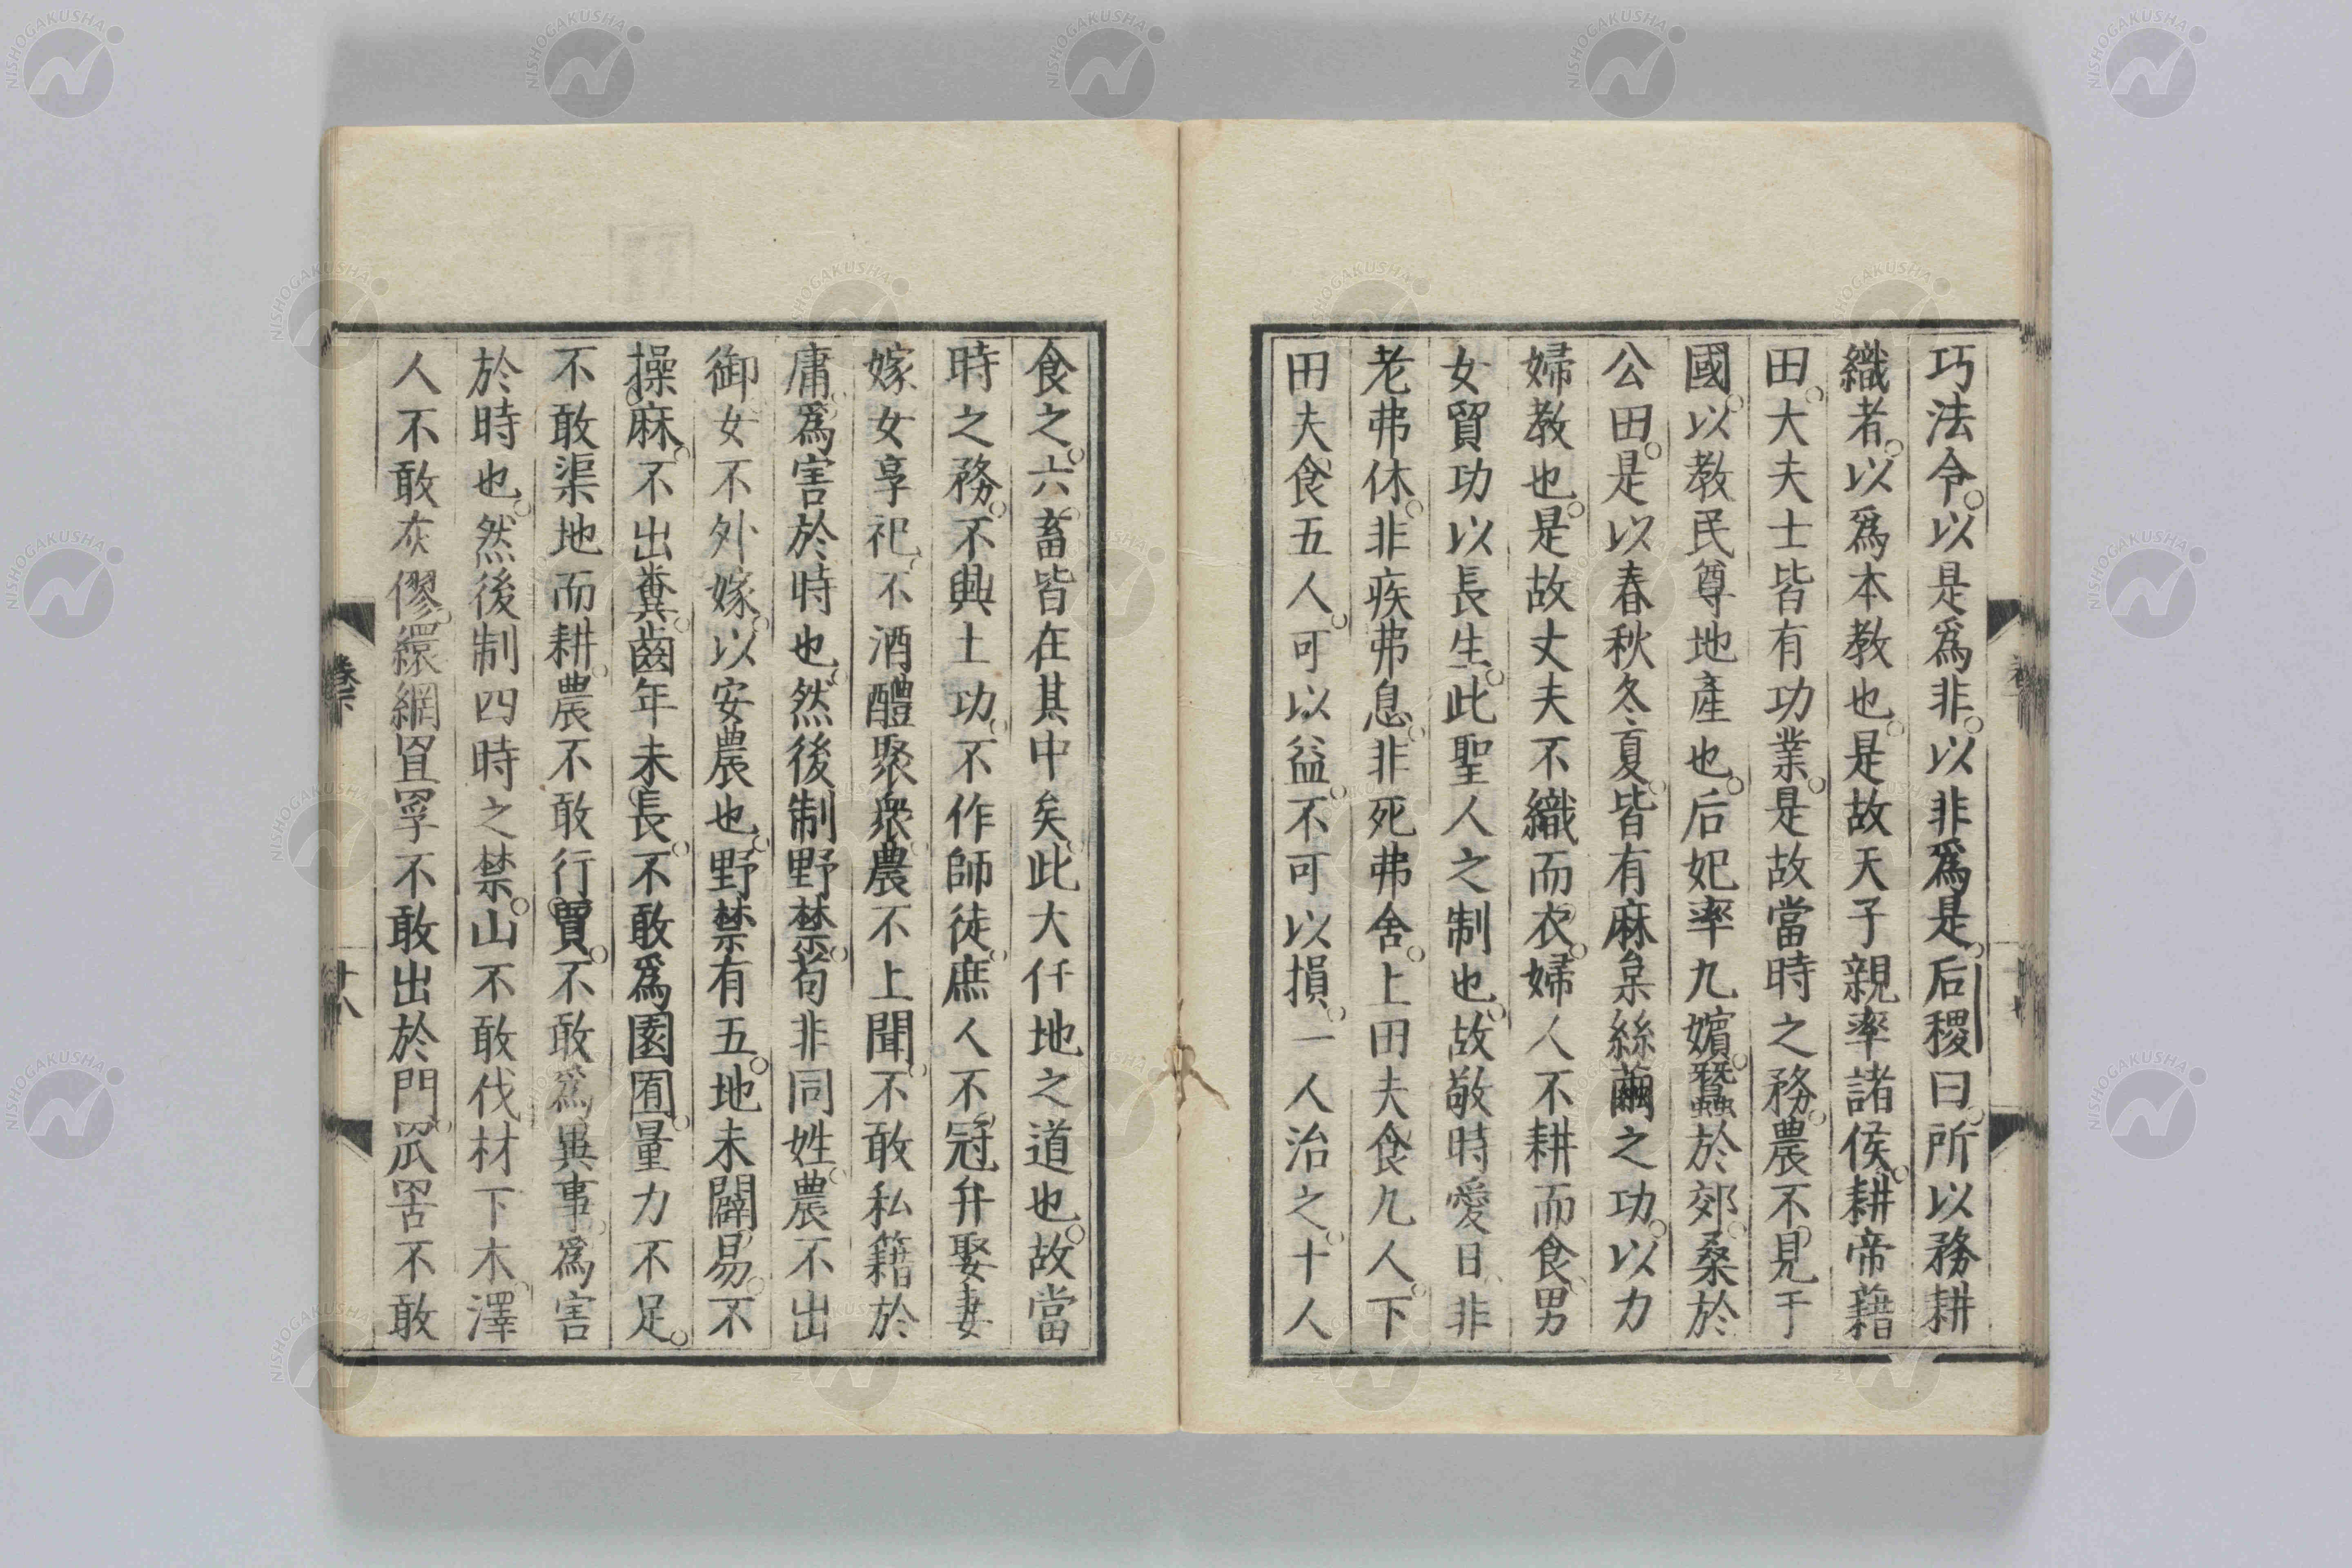 巧法令以是爲非以非爲是后稷曰所以務耕
織者以爲本教也是故天子親率諸侯耕帝藉
田大夫士皆有功業是故當時之務農不見于
國以教民尊地產也后妃率九嬪蠶於郊桑於
公田是以春秋冬夏皆有麻枲絲繭之功以力
婦教也是故丈夫不織而衣婦人不耕而食男
女貿功以長生此聖人之制也故敬時愛日非
老弗休非疾弗息非死弗舍上田夫食九人下
田夫食五人可以益不可以損一人治之十人
食之六畜皆在其中矣此大任地之道也故當
時之務不興土功不作師徒庶人不冠弁娶妻
嫁女享祀不酒醴聚衆農不上聞不敢私籍於
庸爲害於時也然後制野禁苟非同姓農不出
御女不外嫁以安農也野禁有五地未闢易不
操麻不出糞齒年未長不敢爲園囿量力不足
不敢渠地而耕農不敢行賈不敢爲異事爲害
於時也然後制四時之禁山不敢伐材下木澤
人不敢灰僇繯網罝罦不敢出於門罛罟不敢
卷下
十八
NISHOGAKUSHA